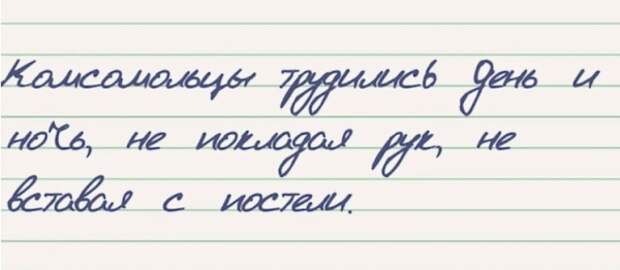 Комсомольцы трудились день и
ночь, не покладая рук, не
вставая с постели.